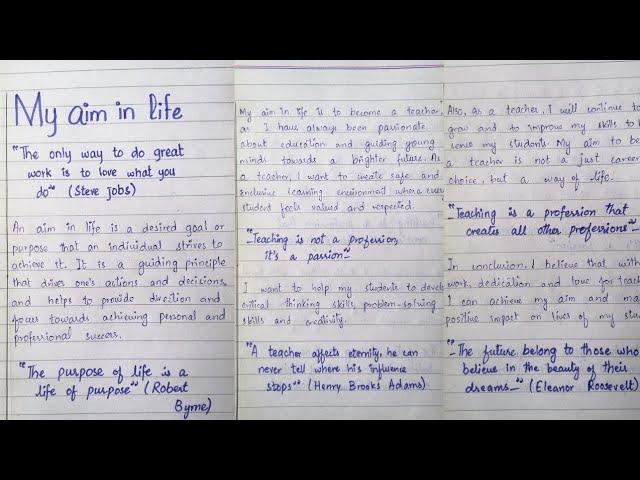 My aim in life
"The only way to do great
work is to love what you
do" (Steve Jobs)
An aim in life is a desired goal or
purpose that an individual strives to
achieve it. It is a guiding principle
that drives one's actions and decisions,
and helps to provide direction and
focus towards achieving personal and
professional success.
"The purpose of life is a
life of purpose" (Robert
Byrne)
My aim in life is to become a teacher,
as I have always been passionate
about education and guiding young
minds towards a brighter future. As
a teacher, I want to create safe and
inclusive learning environment where
student feels valued and respected.
"Teaching is not a profession,
it's a passion"
I want to help my students to
critical thinking skills, problem-solving
skills and creativity.
"A teacher affects eternity, he can
never tell where his influence
stops" (Henry Brooks Adams)
Also, as a teacher, I will continue to
grow and to improve my skills to
serve my students. My aim to be
a teacher is not just career
choice, but a way of life.
"Teaching is a profession that
creates all other professions"
In conclusion, I believe that with
work, dedication and love for
I can achieve my aim and
positive impact on lives of my
"The future belong to those who
believe in the beauty of their
dreams" (Eleanor Roosevelt)